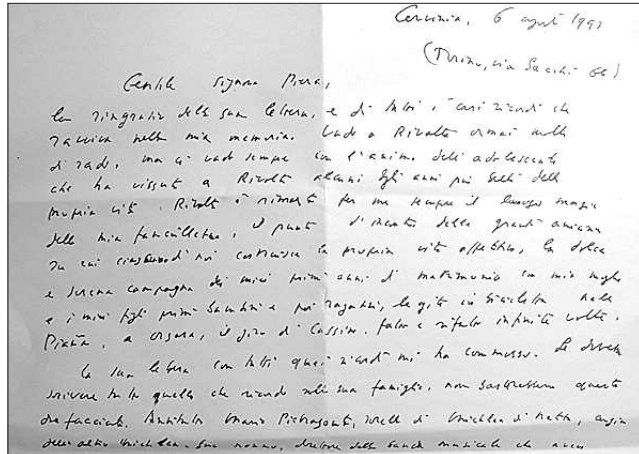 Cervinia, 6 agosto 1991
(Torino, via Sacchi 66)
Gentile Signora Piera,
La ringrazio della sua lettera, e di tutti i cari ricordi che
ravviva nella mia memoria. Vado a Rivalta ormai molto
di rado, ma ci vado sempre con l'animo dell'adolescente
che ha vissuto a Rivalta alcuni degli anni più belli della
propria vita. Rivalta è rimasta per me sempre il luogo magico
della mia fanciullezza, il punto d'incanto della
su cui ciascuno di noi costruisce la propria vita affettiva, la dolce
e serena compagna dei miei primi anni di matrimonio con mia moglie
e i miei figli prima bambini e poi ragazzi, le gite in bicicletta nelle
a Orsara, il giro di Cassine, fatto e rifatto infinite volte.
La sua lettera con tutti quei ricordi mi ha commosso. Se dovessi
scrivere tutto quello che ricordo sulla sua famiglia, non basterebbero queste
due facciate. Anzitutto Mario Pietragonti,
Suo nonno, direttore della banda musicale che aveva